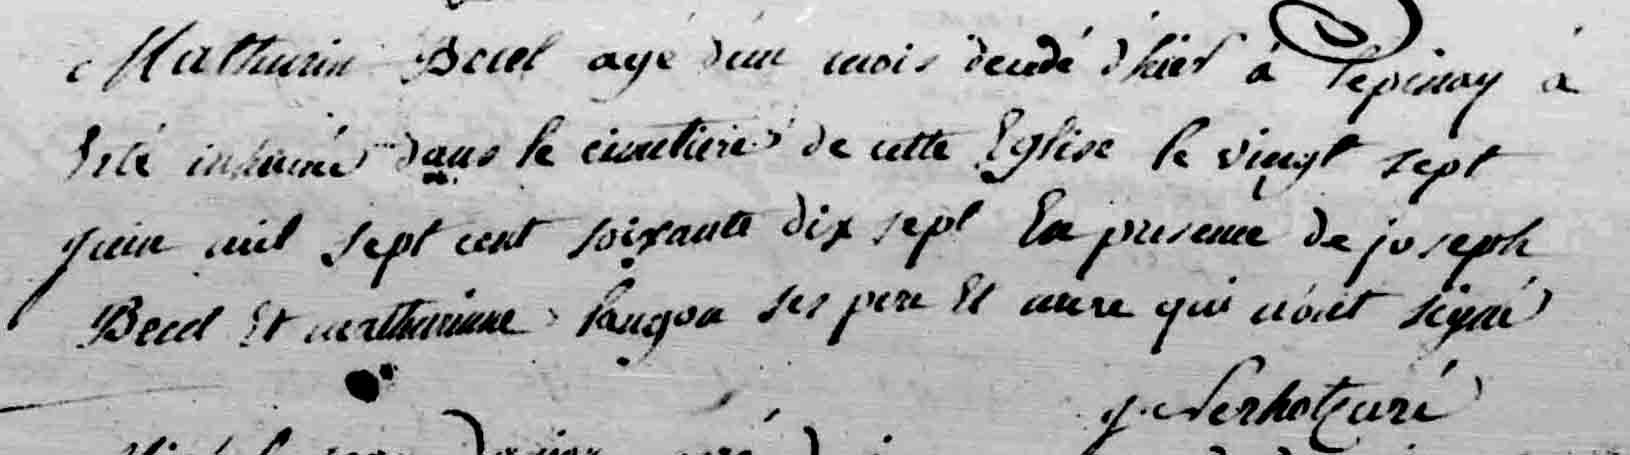 Mathurin Becel agé d'un mois decedé d'hier à lepinay à
Eté inhumé dans le cimetiere de cette Eglise le vingt sept
juin mil sept cent soixante dix sept En presence de joseph
Becel Et mathurinne langon ses pere Et mere qui n'ont signé